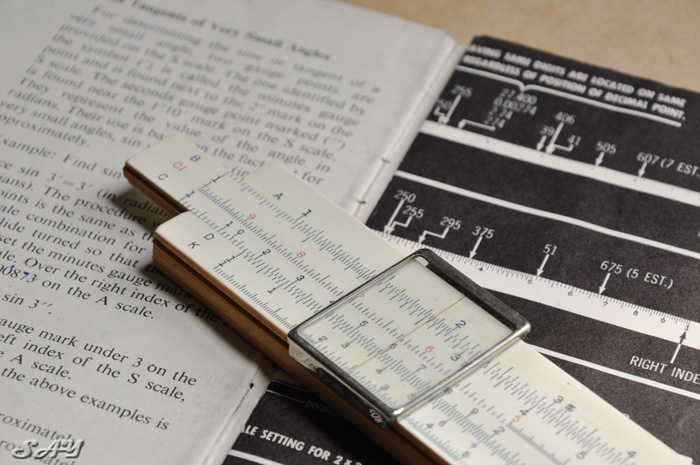 Tangents of Very Small Angles
For determining the sine or tangent of a
very small angle, two gauge points are
provided on the S scale. The one identified by
the symbol (') is called the minutes gauge
point and is found next to the 2° mark on the
S scale. The seconds gauge point marked (")
is found near the 1°10' mark on the S scale.
They represent the value of the angle in
radians. Their use is ba on the fact for
very small angles, sin
approximately.
Example: Find sin
ce sin 3'=3' (in radian
ians). The procedure
points is the same as
ale combination for
lide turned so that
set the minutes gauge mark
ale. Over the right index of the
00873 on the A scale.
sin 3".
auge mark under 3 on the
eft index of the S scale,
e A scale.
the above examples is
proximately
proximately
HAVING SAME DIGITS ARE LOCATED ON SAME
REGARDLESS OF POSITION OF DECIMAL POINT.
255
27,400
0.00274
2.74
274
406
39
41
505
607 (7 EST.)
250
255
295
375
51
675 (5 EST.)
RIGHT INDE
ALE SETTING FOR 2 x
B
CI
C
A
D
K
SAY